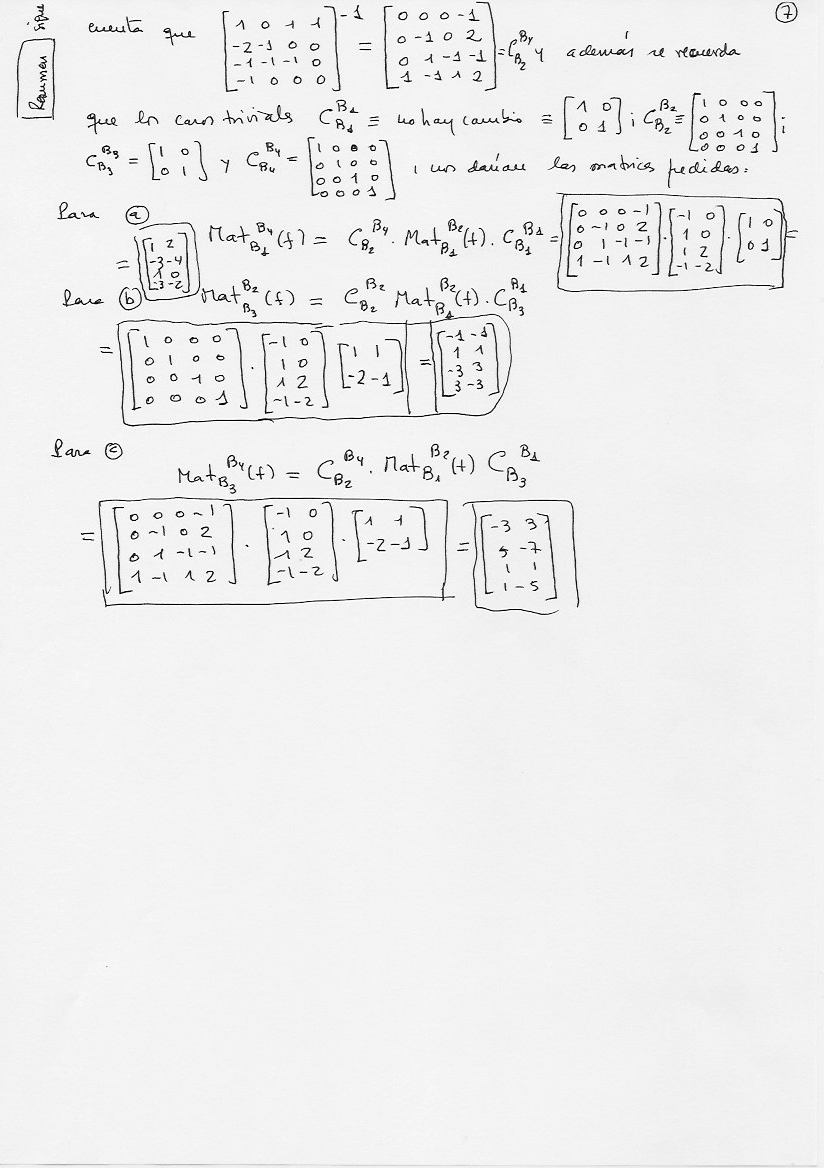 Resumen sigue
⑦
cuenta que [1 0 1 1; -2 -1 0 0; -1 -1 -1 0; -1 0 0 0]^-1 = [0 0 0 -1; 0 -1 0 2; 0 1 -1 -1; 1 -1 1 2] = C_B2^B4 y además se recuerda
que los casos triviales C_B1^B1 ≡ no hay cambio ≡ [1 0; 0 1] ; C_B2^B2 ≡ [1 0 0 0; 0 1 0 0; 0 0 1 0; 0 0 0 1] ;
C_B3^B3 = [1 0; 0 1] y C_B4^B4 = [1 0 0 0; 0 1 0 0; 0 0 1 0; 0 0 0 1] , nos darían las matrices pedidas:
Para ⓐ Mat_B1^B4(f) = C_B2^B4 · Mat_B1^B2(f) · C_B1^B1 = [0 0 0 -1; 0 -1 0 2; 0 1 -1 -1; 1 -1 1 2] · [-1 0; 1 0; 1 2; -1 -2] · [1 0; 0 1] =
= [1 2; -3 -4; 1 0; -3 -2]
Para ⓑ Mat_B3^B2(f) = C_B2^B2 Mat_B1^B2(f) · C_B3^B1
= [1 0 0 0; 0 1 0 0; 0 0 1 0; 0 0 0 1] · [-1 0; 1 0; 1 2; -1 -2] [1 1; -2 -1] = [-1 -1; 1 1; -3 3; 3 -3]
Para ⓒ
Mat_B3^B4(f) = C_B2^B4 · Mat_B1^B2(f) C_B3^B1
= [0 0 0 -1; 0 -1 0 2; 0 1 -1 -1; 1 -1 1 2] · [-1 0; 1 0; 1 2; -1 -2] · [1 1; -2 -1] = [-3 3; 5 -7; 1 1; 1 -5]